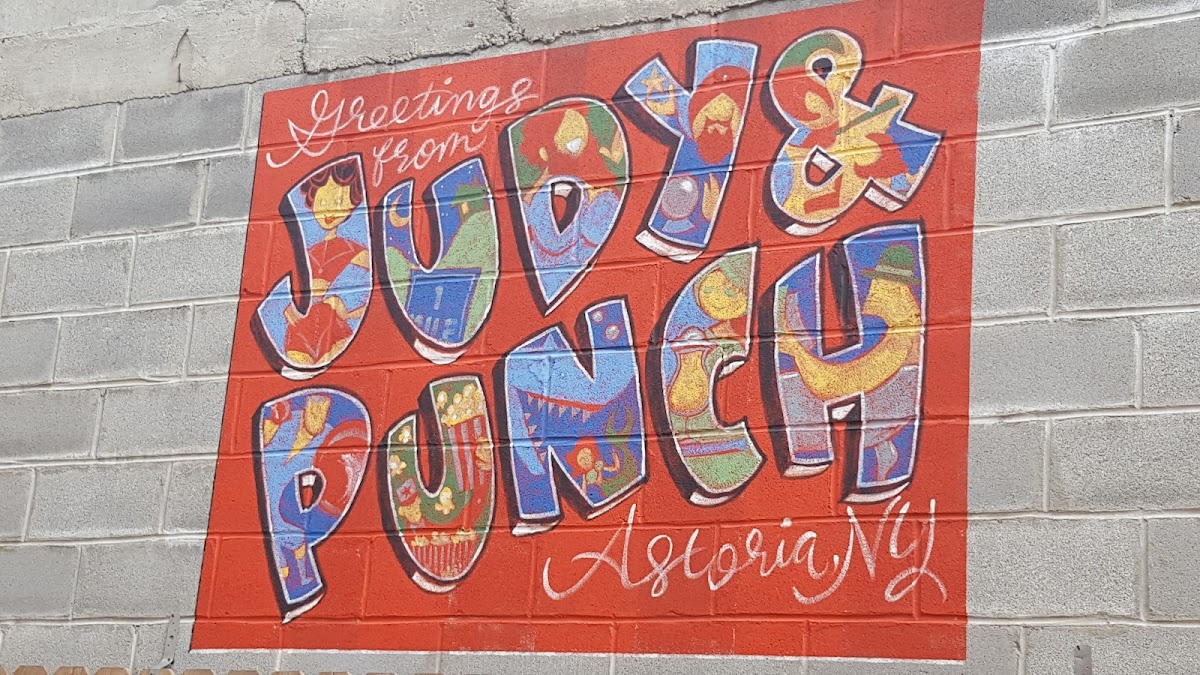 Greetings
from
JUDY &
1
MILE
PUNCH
Astoria, NY